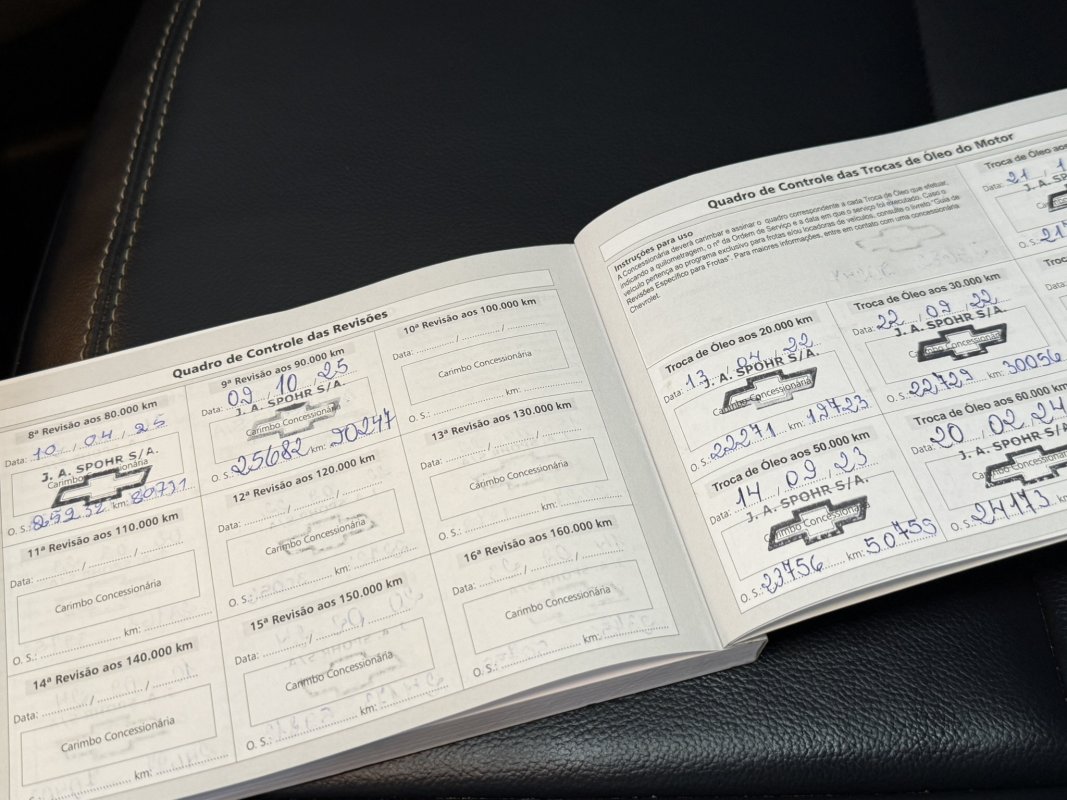 Quadro de Controle das Revisões
8ª Revisão aos 80.000 km
Data: 10 / 04 / 25
J. A. SPOHR S/A.
Carimbo Concessionária
O. S.: 25232 km: 80731
9ª Revisão aos 90.000 km
Data: 09 / 10 / 25
J. A. SPOHR S/A
Carimbo Concessionária
O. S.: 25682 km: 90247
10ª Revisão aos 100.000 km
Data: / /
Carimbo Concessionária
O. S.: km:
11ª Revisão aos 110.000 km
Data: / /
Carimbo Concessionária
O. S.: km:
12ª Revisão aos 120.000 km
Data: / /
Carimbo Concessionária
O. S.: km:
13ª Revisão aos 130.000 km
Data: / /
Carimbo Concessionária
O. S.: km:
14ª Revisão aos 140.000 km
Data: / /
Carimbo Concessionária
km:
15ª Revisão aos 150.000 km
Data: / /
Carimbo Concessionária
O. S.: km:
16ª Revisão aos 160.000 km
Data: / /
Carimbo Concessionária
O. S.: km:
Quadro de Controle das Trocas de Óleo do Motor
Instruções para uso
A Concessionária deverá carimbar e assinar o quadro correspondente a cada Troca de Óleo que efetuar,
indicando a quilometragem, o nº da Ordem de Serviço e a data em que o serviço foi executado. Caso o
veículo pertença ao programa exclusivo para frotas e/ou locadoras de veículos, consulte o livreto "Guia de
Revisões Específico para Frotas". Para maiores informações, entre em contato com uma concessionária
Chevrolet.
Troca de Óleo aos
Data: 21 / 1
J. A. SP
O. S.: 21
Troca de Óleo aos 20.000 km
Data: 13 / 04 / 22
J. A. SPOHR S/A.
Carimbo Concessionária
O. S.: 22271 km: 19723
Troca de Óleo aos 30.000 km
Data: 22 / 09 / 22
J. A. SPOHR S/A.
Carimbo Concessionária
O. S.: 22729 km: 30056
Troc
Data:
Troca de Óleo aos 50.000 km
Data: 14 / 09 / 23
J. A. SPOHR S/A.
Carimbo Concessionária
O. S.: 23756 km: 50755
Troca de Óleo aos 60.000 km
Data: 20 / 02 / 24
J. A. SPOHR S/A
Carimbo Concessionár
O. S.: 24173 km